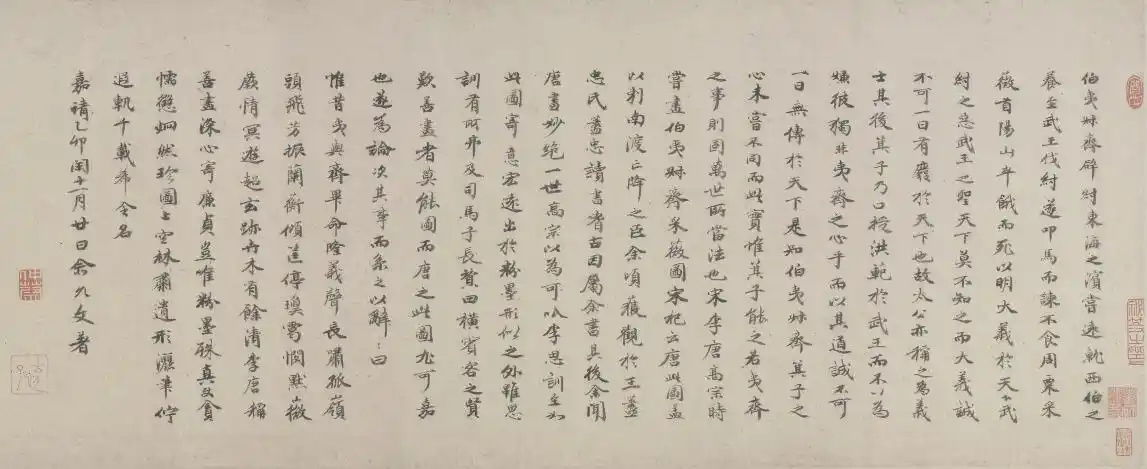 伯夷叔齊辟紂東海之濱嘗速軌西伯之
養至武王伐紂遂叩馬而諫不食周粟采
薇首陽山卒餓而死以明大義於天下武
紂之惡武王之聖天下莫不知之而大義誠
不可一日有廢於天下也故太公亦稱之為義
士其後箕子乃口授洪範於武王而不以為
嫌彼獨非夷齊之心乎而以其道誠不可
一日無傳於天下是知伯夷叔齊箕子之
心未嘗不同而此實惟箕子能之若夷齊
之事則固萬世所當法也宋李唐高宗時
嘗畫伯夷叔齊采薇圖宋杞云唐此圖蓋
以刺南渡亡降之臣余頃獲觀於王藎
忠民藎忠讀書耆古因屬余書其後余聞
唐畫妙絕一世高宗以為可以李思訓至如
此圖寄意宏遠出於粉墨形似之外雖思
訓有所弗及司馬子長贊田橫賓客之賢
歎善畫者莫能圖而唐之此圖尤可嘉
也遂為論次其事而系之以辭辭曰
惟昔夷與齊畢命隆義聲長嘯振嶺
頭飛芳振蘭蘅傾筐停璵雩憫默薇
蕨情冥遊超玄跡卉木有餘清李唐稱
善畫深心寄廉貞豈唯粉墨殊真女貪
懦懲炯然珍圖上空林肅遺形灑筆佇
遐軌千載希令名
嘉靖乙卯閏十一月廿日余九文著